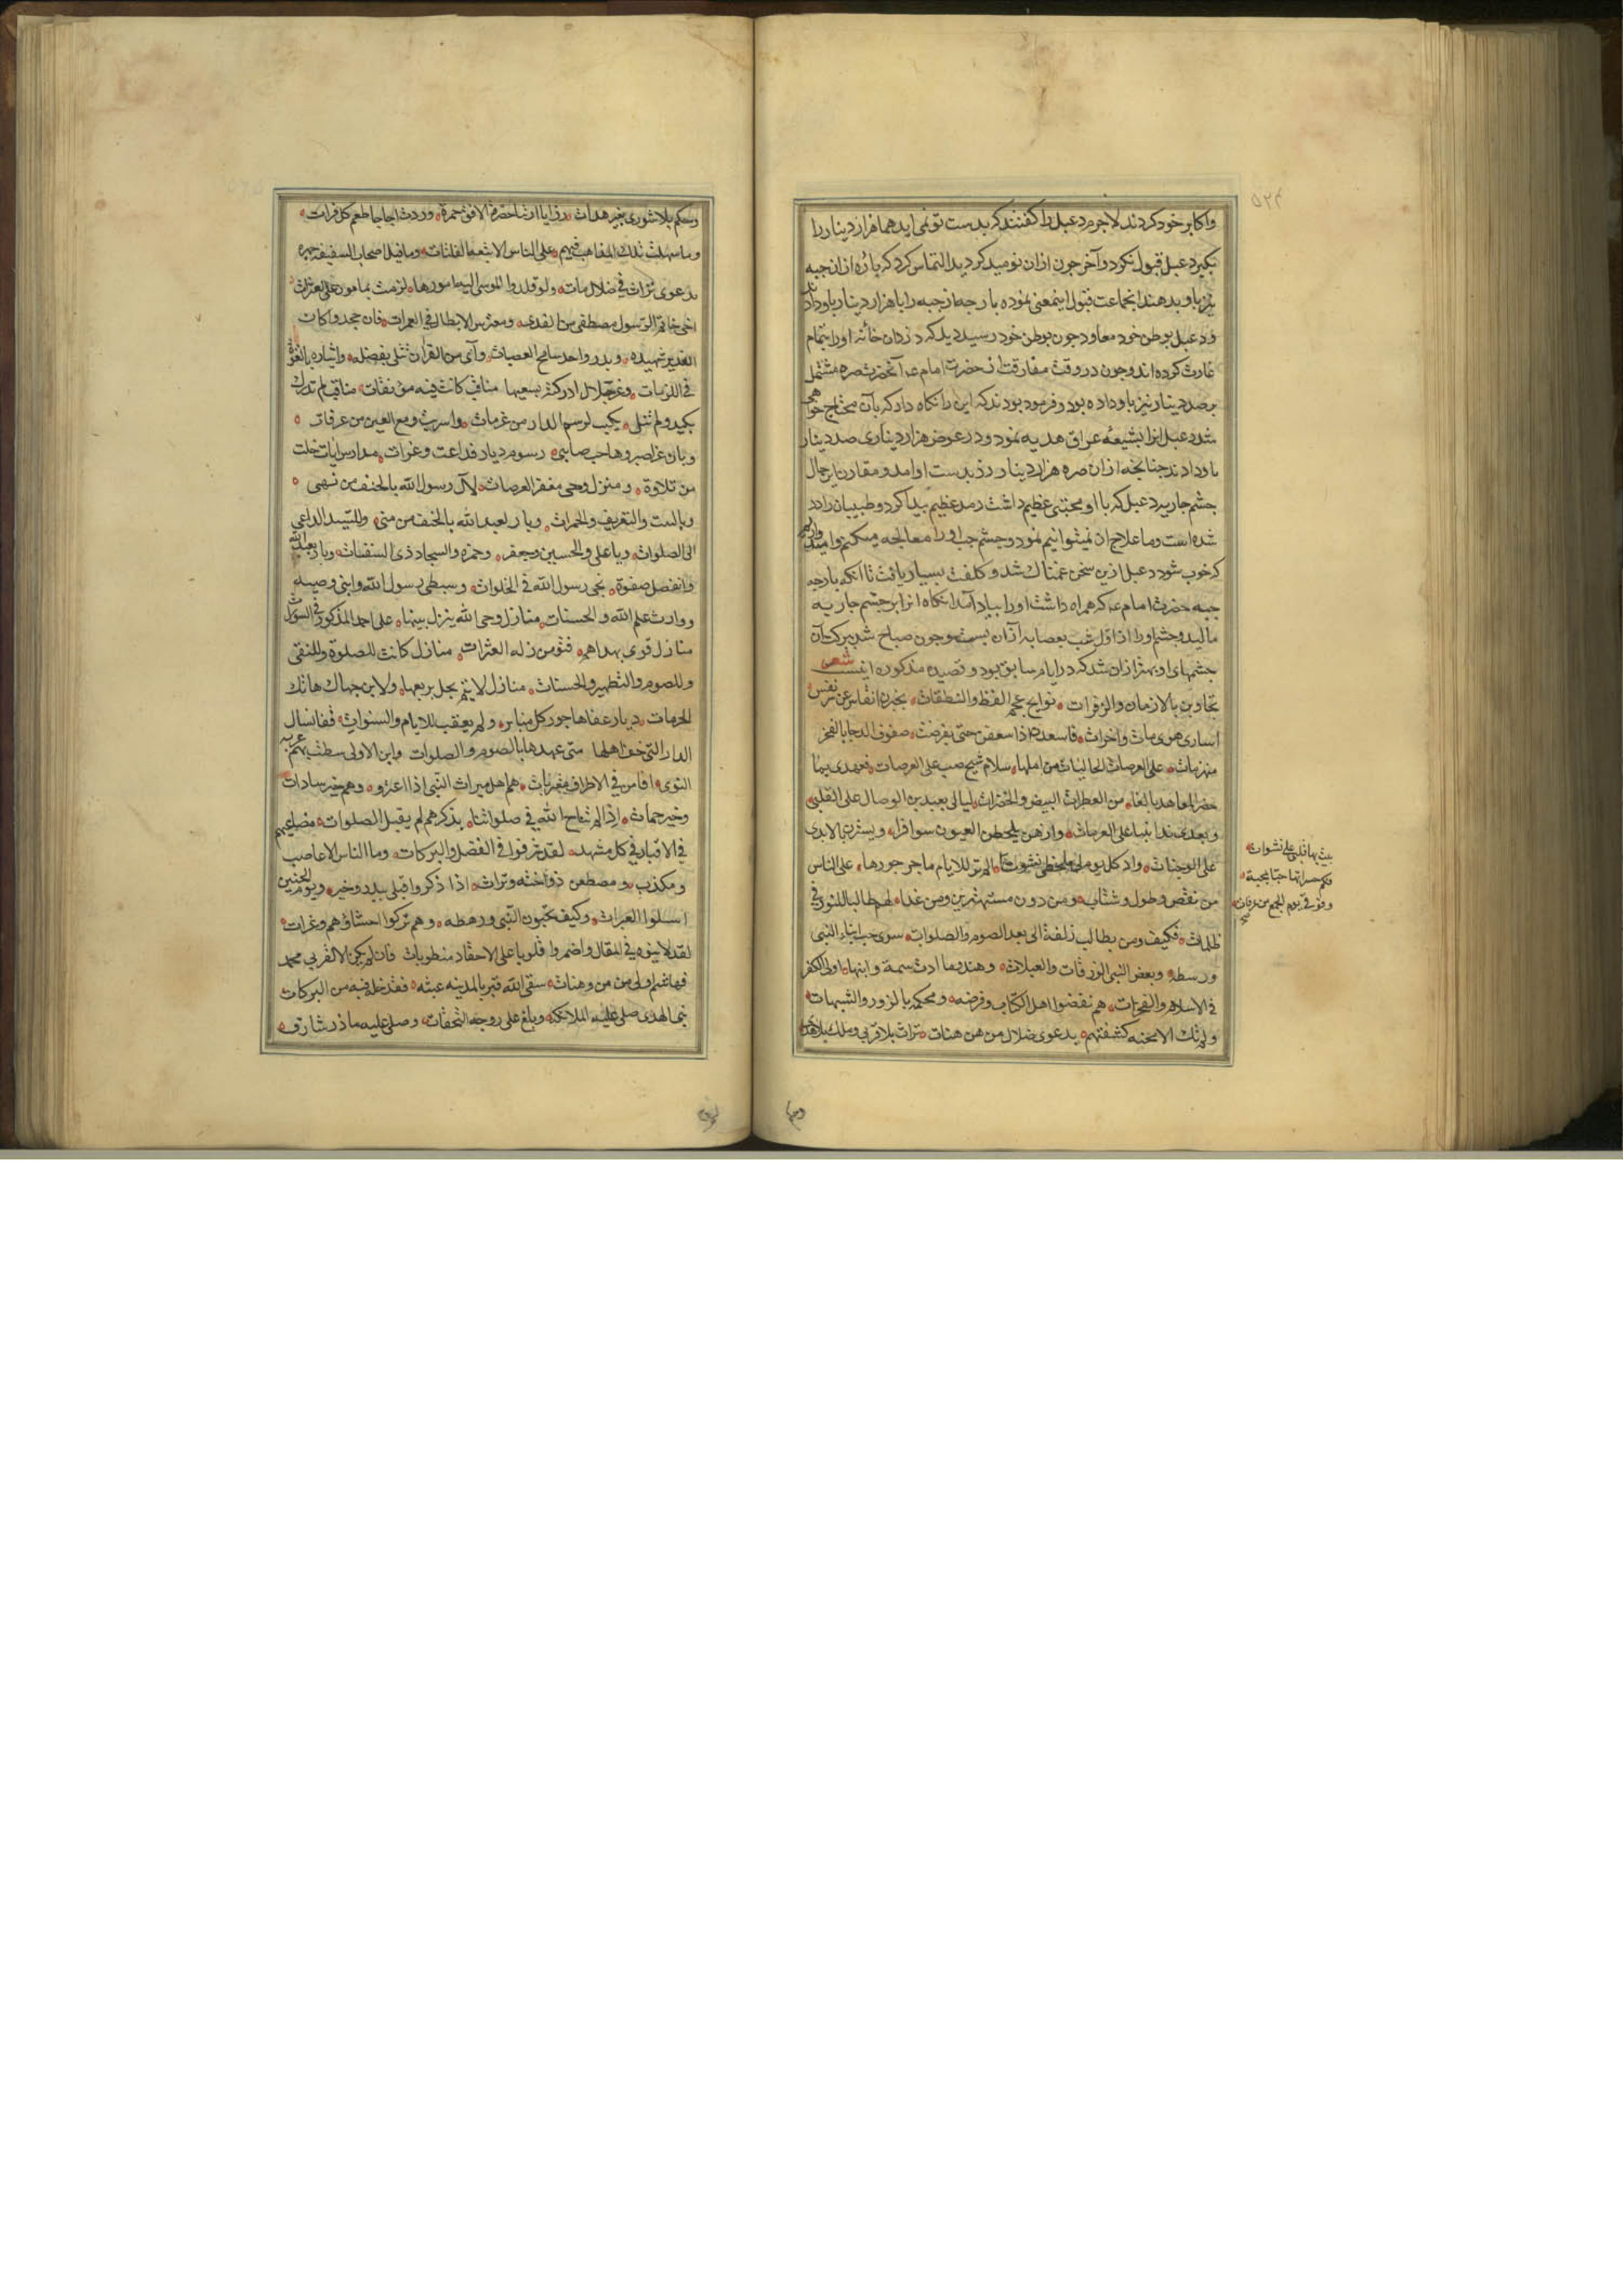 ۵۲۴
واکابر خود کردند لاجرم دعبل را گفتند که بدست تو نمی اید همان هزار دینار را
بگیر دعبل قبول نکرد و آخر چون ازان نومید کردید التماس کرد که پارهٔ ازان جبه
نیز باو بدهند انجماعت قبول اینمعنی نموده پارچه از جبه را با هزار دینار باو دادند
و دعبل بوطن خود معاود چون بوطن خود رسید دید که دزدان خانه او را بتمام
غارت کرده اند و چون در وقت مفارقت از حضرت امام ع آنحضرت صره مشتمل
بر صد دینار نیز باو داده بود و فرمود بودند که این را نگاه دار که بآن محتاج خواهی
شد دعبل انرا بشیعهٔ عراق هدیه نمود و در عوض هر دیناری صد دینار
باو دادند چنانچه ازان صره هزار دینار زر بدست او امد و مقارن این حال
چشم جاریه دعبل که با او محبتی عظیم داشت رمد عظیم پیدا کرد و طبیبان
شده است و ما علاج ان نمیتوانیم نمود و چشم چپ او را معالجه میکنیم و امیدواریم
که خوب شود دعبل ازین سخن غمناک شد و کلفت بسیار یافت تا انکه پارچه
جبه حضرت امام ع که همراه داشت او را بیاد آمد انگاه انرا بر چشم جاریه
مالید و چشم او را از اول شب بعصابه ازان بست و چون صباح شد ببرکت آن
چشمهای او بهتر ازان شد که در ایام سابق بود و قصیده مذکوره اینست شعر
تجاوبن بالارنان والزفرات نوایح عجم اللفظ والنطقات یخبرن بانفاس عن سر نفس
اساری هوی ماض واخرات فاسعدن او اسعفن حتی تقوضت صفوف الدجا بالفجر
منهزمات علی العرصات الخالیات من املها سلام شج صب علی العرصات فعهدی بها
خضر المعاهد مالفا من العطرات البیض والخفرات لیالی یعدین الوصال علی القلی
و یعدی تدانینا علی العزبات واذ هن یلحظن العیون سوافرا ویسترن بالایدی
علی الوجنات واذ کل یوم لی بلحظی نشوة الم تر للایام ما جر جورها علی الناس
من نقض وطول شتات ومن دول مستهزئین ومن غدا بهم طالبا للنور فی
ظلمات فکیف ومن یطالب زلفة الی بعد الصوم والصلوات سوی حب ابناء النبی
ورهطه وبغض بنی الزرقات والعبلات وهند وما ادت سمیة وابنها اولی الکفر
فی الاسلام والفجرات هم نقضوا عهد الکتاب وفرضه ومحکمه بالزور والشبهات
ولم تک الا محنة کشفتهم بدعوی ضلال من هن هنات تراث بلا قربی وملک بلا هدی
یبیت بها قلبی علی نشوات
فکم حسرات هاجها بمحسر
وقوفی یوم الجمع من عرفات
وحکم
وحکم بلا شوری بغیر هدات رزایا ارتنا خضرة الافق حمرة وردت اجاجا طعم کل فرات
وما سهلت تلک المذاهب فیهم علی الناس الا بیعة الفلتات وما قیل اصحاب السقیفة جهرة
بدعوی تراث فی الضلال بتات ولو قلدوا الموصی الیه امورها لزمت بمامون علی العثرات
اخی خاتم الرسل المصفی من القذی ومفترس الابطال فی الغمرات فان جحدوا کان
الغدیر شهیده وبدر واحد شامخ الهضبات وآی من القرآن تتلی بفضله وایثاره بالقوت
فی اللزبات وعز خلال ادرکته بسبقها مناقب کانت فیه مؤتنفات مناقب لم تدرک
بکید ولم تنل بکیت لرسم الدار من عرفات واسریت دمع العین من عرفات
وبان عری صبری وهاجت صبابتی رسوم دیار قد اعفت وعرات مدارس ایات خلت
من تلاوة ومنزل وحی مقفر العرصات لآل رسول الله بالخیف من منی
وبالبیت والتعریف والجمرات دیار لعبد الله بالخیف من منی وللسید الداعی
الی الصلوات دیار علی والحسین وجعفر وحمزه والسجاد ذی الثفنات دیار لعبد الله
والفضل صنوه نجی رسول الله فی الخلوات وسبطی رسول الله وابنی وصیه
ووارث علم الله والحسنات منازل وحی الله ینزل بینها علی احمد المذکور فی السورات
منازل قوم یهتدی بهداهم فتؤمن زلة العثرات منازل کانت للصلوة وللتقی
وللصوم والتطهیر والحسنات منازل لا یتم یحل بربعها ولا ابن جهاک هاتک
الحرمات دیار عفاها جور کل منابذ ولم یعف للایام والسنوات قفا نسال
الدار التی خف اهلها متی عهدها بالصوم والصلوات واین الاولی شطت بهم غربة
النوی افانین فی الاطراف مفترقات هم اهل میراث النبی اذا اعتزوا وهم خیر سادات
وخیر حمات اذا لم نناج الله فی صلواتنا بذکرهم لم یقبل الصلوات
فی الاقطار فی کل مشهد لقد شرفوا فی الفضل والبرکات وما الناس الا غاصب
ومکذب ومضطغن ذو احنة وترات اذا ذکروا قتلی ببدر وخیبر ویوم الحنین
اسبلوا العبرات وکیف یحبون النبی ورهطه وهم ترکوا احشاؤهم وغرات
لقد لاینوه فی المقال واضمروا قلوبا علی الاحقاد منطویات فان لم یکن الا لقربی محمد
فهاشم اولی من هن وهنات سقی الله قبرا بالمدینه غیثه فقد حل فیه من البرکات
نبی الهدی صلی علیه الملائکه وبلغ علی روحه التحفات وصلی علیه ما ذر شارق